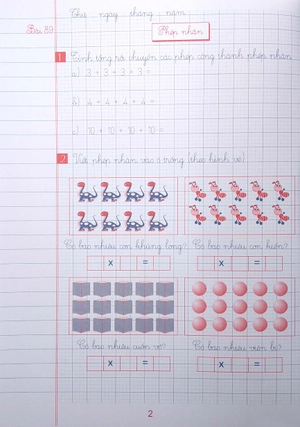 Thứ ngày tháng năm
Bài 89
Phép nhân
1 Tính tổng rồi chuyển các phép cộng thành phép nhân
a) 3 + 3 + 3 + 3 =
b) 4 + 4 + 4 + 4 =
c) 10 + 10 + 10 + 10 =
2 Viết phép nhân vào ô trống (theo hình vẽ)
Có bao nhiêu con khủng long? Có bao nhiêu con kiến?
x = x =
Có bao nhiêu quyển vở? Có bao nhiêu viên bi?
x = x =
2